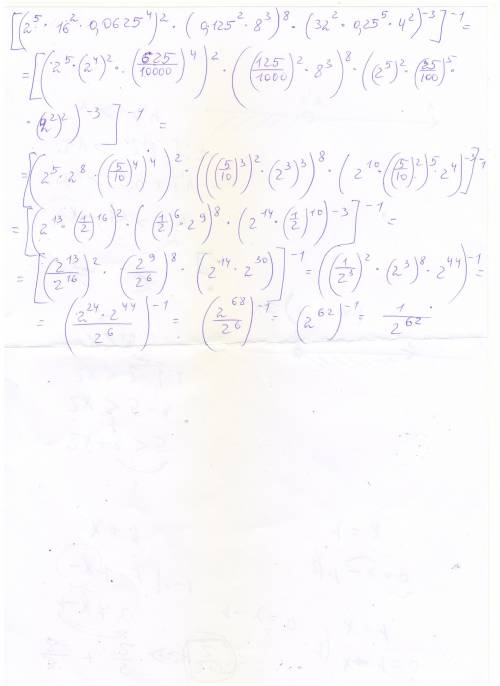 [(2^5 · 16^2 · 0,0625^4)^2 · (0,125^2 · 8^3)^8 · (32^2 · 0,25^5 · 4^2)^-3]^-1 =
= [(2^5 · (2^4)^2 · (625/10000)^4)^2 · ((125/1000)^2 · 8^3)^8 · ((2^5)^2 · (25/100)^5 ·
· (2^2)^2)^-3]^-1 =
= [(2^5 · 2^8 · ((5/10)^4)^4)^2 · (((5/10)^3)^2 · (2^3)^3)^8 · (2^10 · ((5/10)^2)^5 · 2^4)^-3]^-1
= [(2^13 · (1/2)^16)^2 · ((1/2)^6 · 2^9)^8 · (2^14 · (1/2)^10)^-3]^-1 =
= [(2^13/2^16)^2 · (2^9/2^6)^8 · (2^14 · 2^30)]^-1 = ((1/2^3)^2 · (2^3)^8 · 2^44)^-1 =
= (2^24 · 2^44/2^6)^-1 = (2^68/2^6)^-1 = (2^62)^-1 = 1/2^62